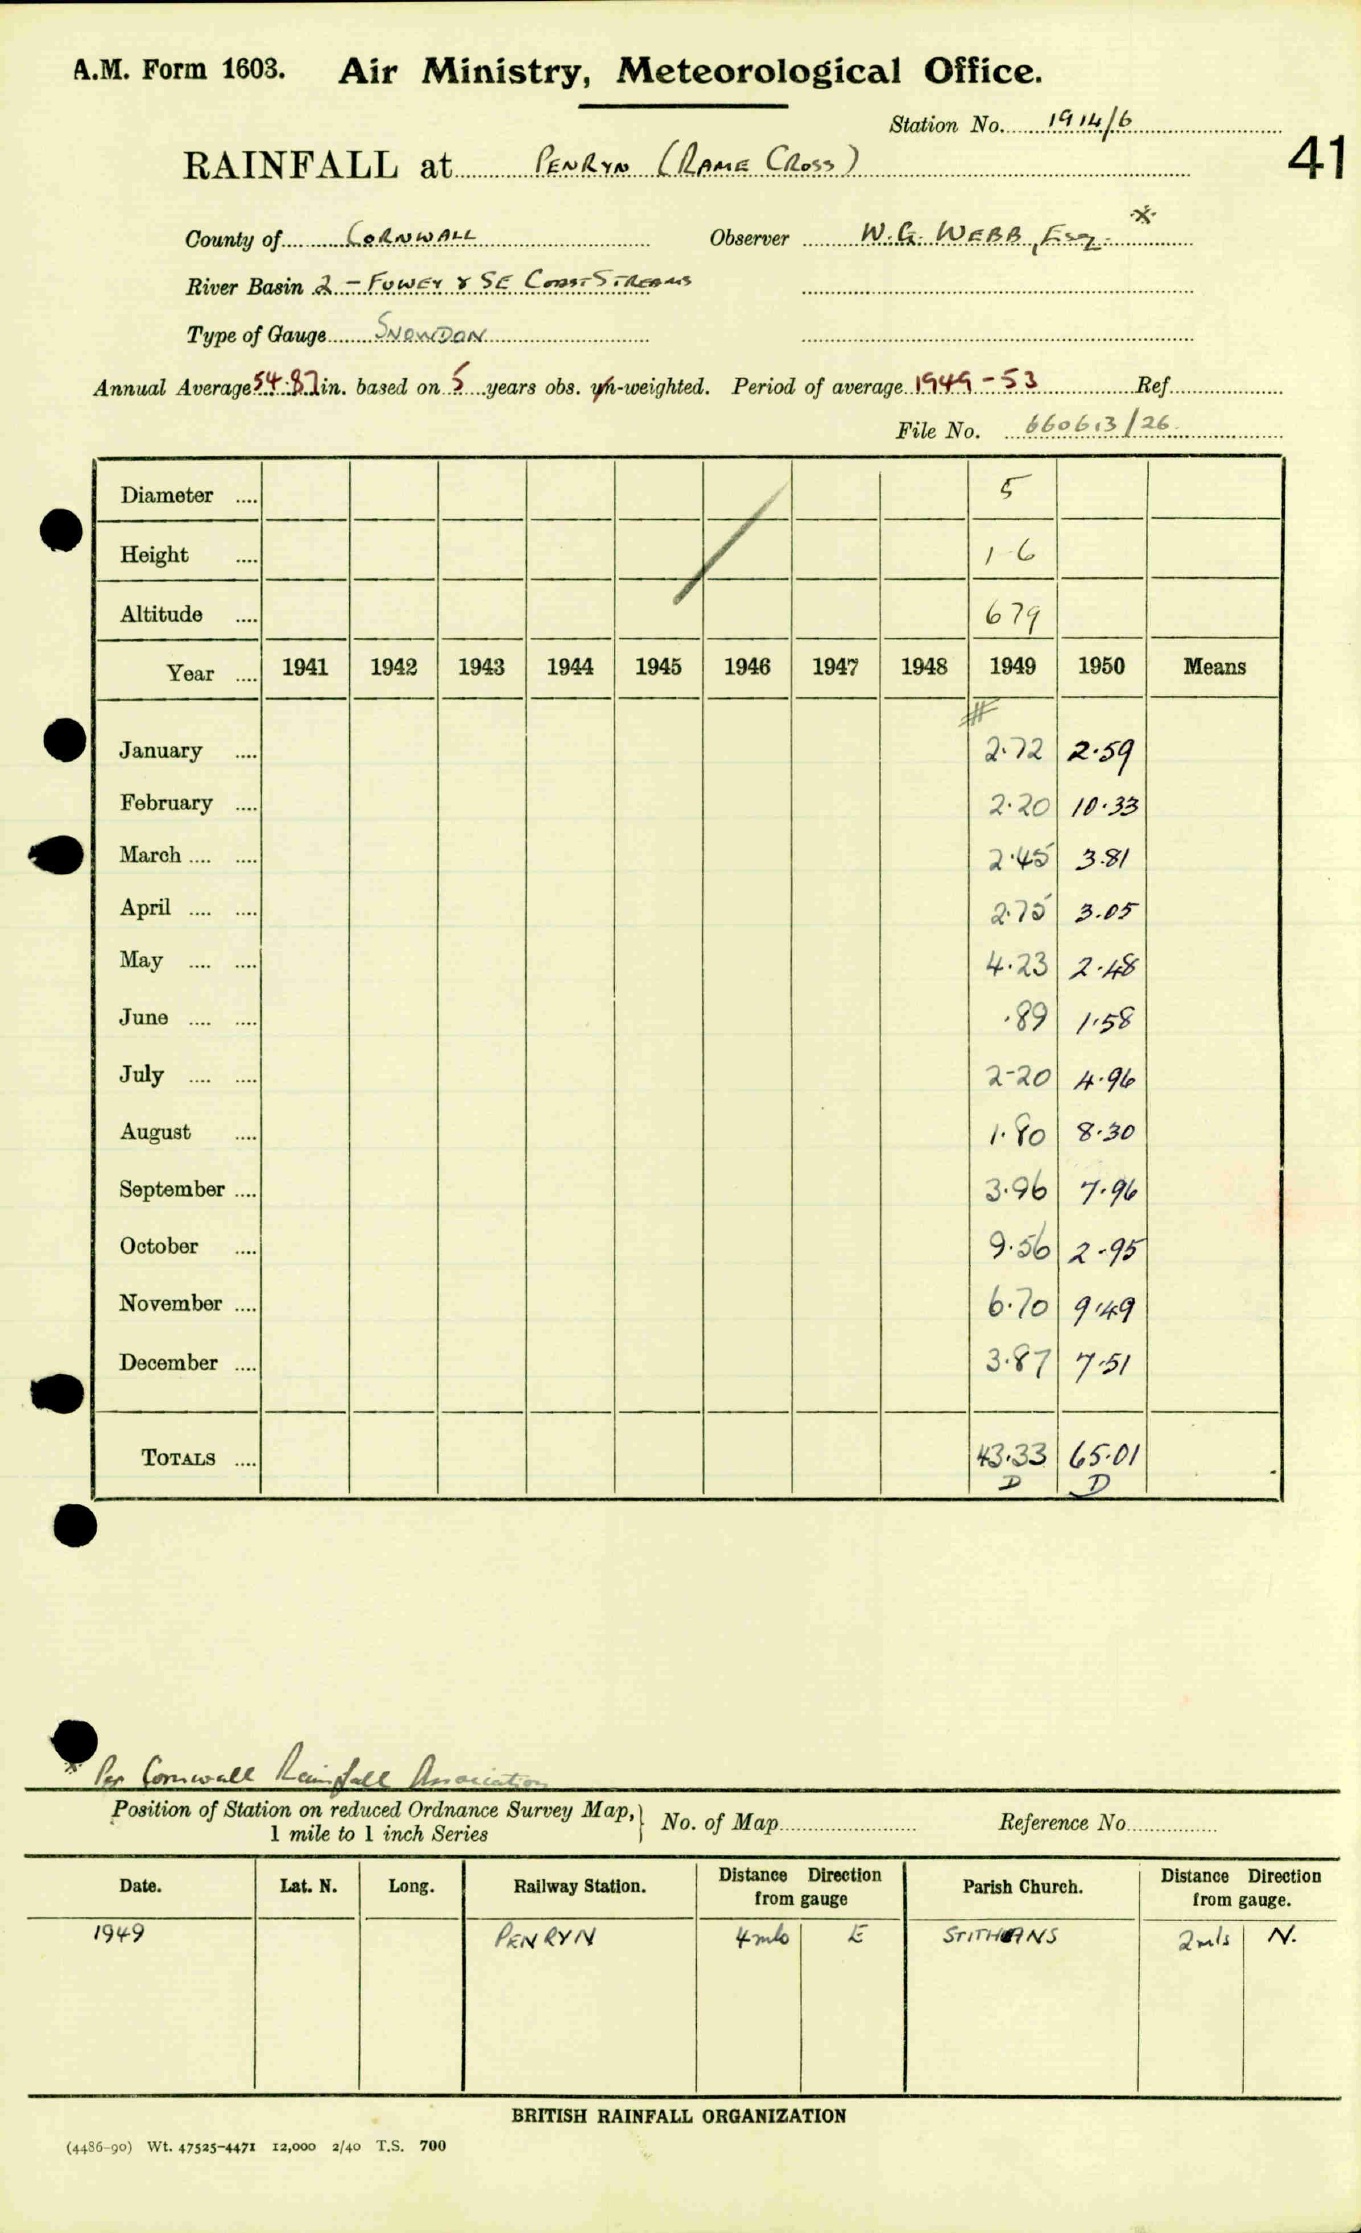 A.M. Form 1603. Air Ministry, Meteorological Office.
Station No. 1914/6
41
RAINFALL at PENRYN (RAME CROSS)
County of CORNWALL Observer W.G. WEBB, Esq. *
River Basin 2 - FOWEY & SE COAST STREAMS
Type of Gauge SNOWDON
Annual Average 54.87 in. based on 5 years obs. un-weighted. Period of average 1949-53 Ref.
File No. 660613/26
Diameter .... 5
Height .... 1-6
Altitude .... 679
Year .... 1941 1942 1943 1944 1945 1946 1947 1948 1949 1950 Means
#
January .... 2.72 2.59
February .... 2.20 10.33
March .... .... 2.45 3.81
April .... .... 2.75 3.05
May .... .... 4.23 2.48
June .... .... .89 1.58
July .... .... 2-20 4.96
August .... 1.80 8.30
September .... 3.96 7.96
October .... 9.56 2.95
November .... 6.70 9.49
December .... 3.87 7.51
TOTALS .... 43.33 65.01
D D
* Per Cornwall Rainfall Association
Position of Station on reduced Ordnance Survey Map, } No. of Map Reference No.
1 mile to 1 inch Series
Date. Lat. N. Long. Railway Station. Distance Direction from gauge Parish Church. Distance Direction from gauge.
1949 PENRYN 4 mls E STITHIANS 2 mls N.
BRITISH RAINFALL ORGANIZATION
(4486-90) Wt. 47525-4471 12,000 2/40 T.S. 700